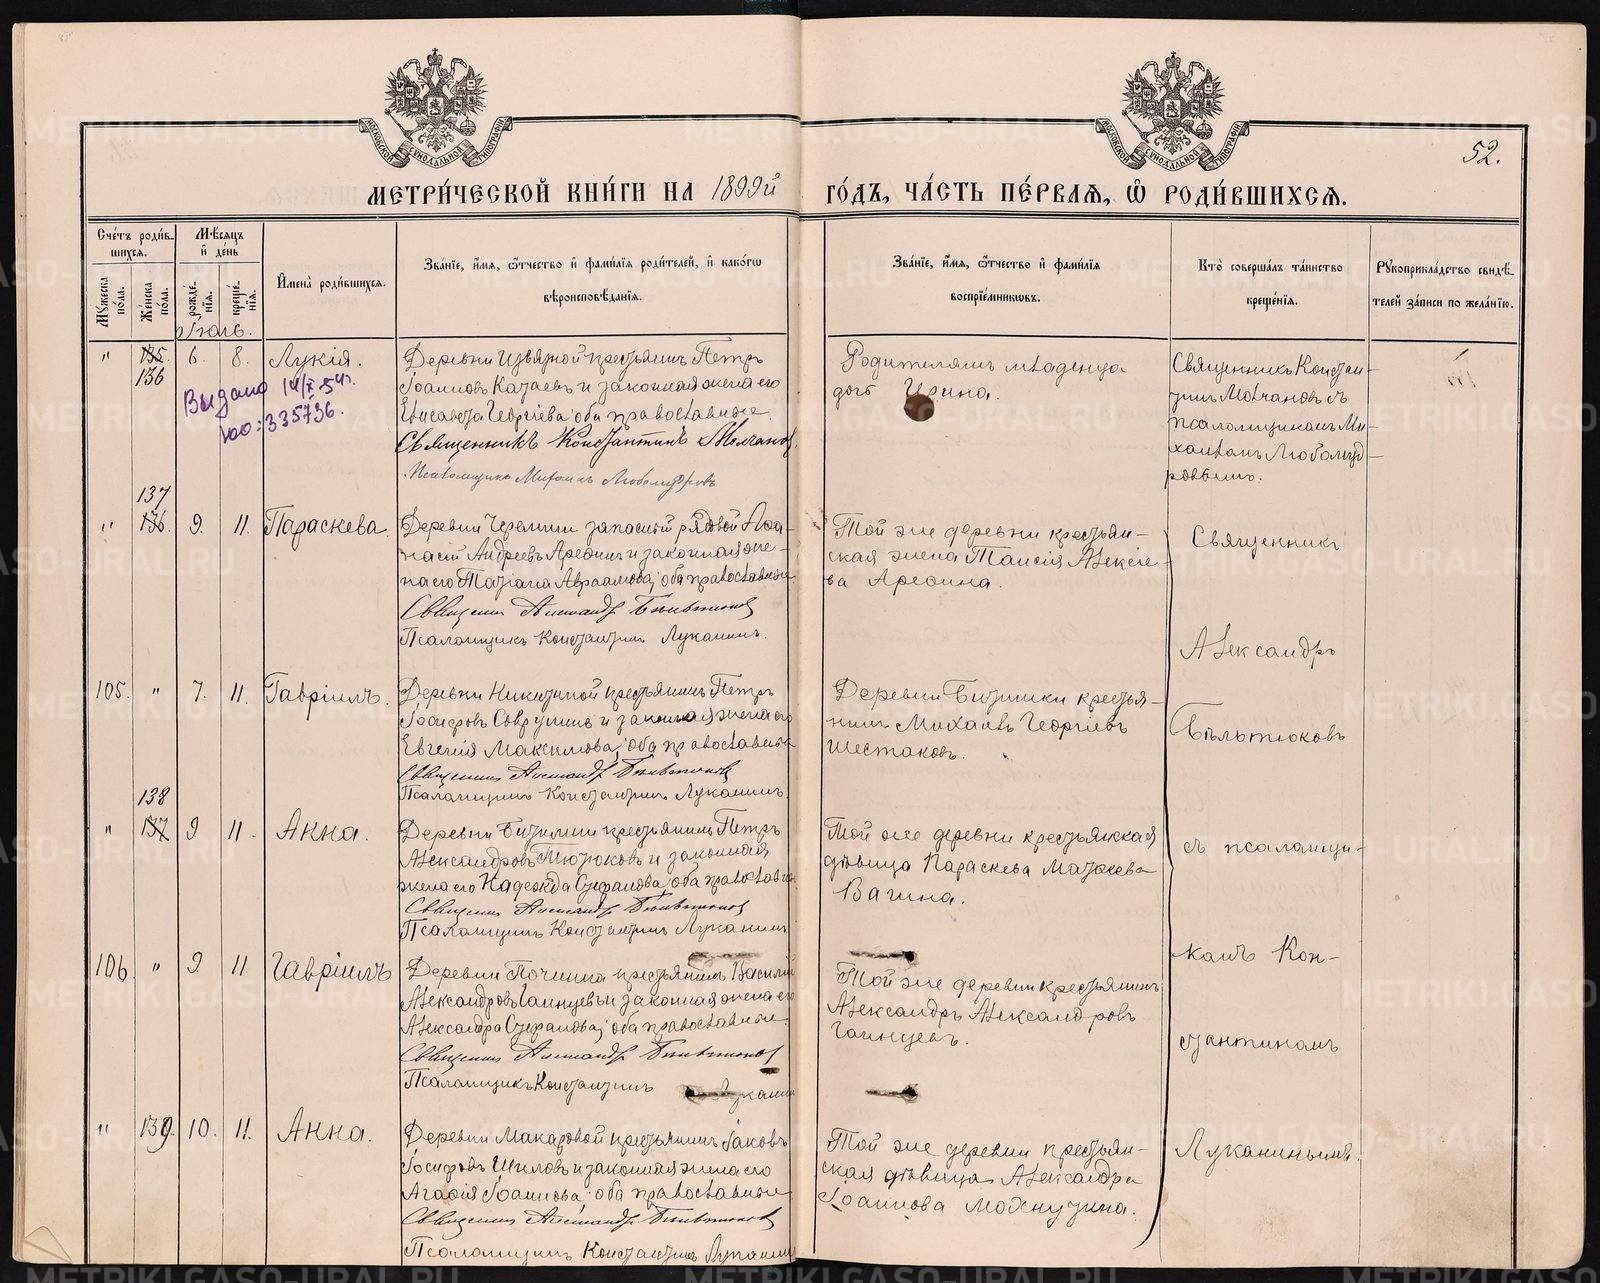 МОСКОВСКОЙ СѴНОДАЛЬНОЙ ТИПОГРАФІИ
МОСКОВСКОЙ СѴНОДАЛЬНОЙ ТИПОГРАФІИ
52.
МЕТРИ́ЧЕСКОЙ КНИ́ГИ НА 1899й ГО́ДЪ, ЧА́СТЬ ПЕ́РВАѦ, Ѡ҆ РОДИ́ВШИХСѦ.
Сче́тъ роди́вшихсѧ.
Мꙋ́жеска по́ла.
Же́нска по́ла.
Мѣ́сѧцъ и҆ де́нь
рожде́нїѧ.
креще́нїѧ.
И҆мена̀ роди́вшихсѧ.
Зва́нїе, и҆́мѧ, ѻ҆́тчество и҆ фами́лїѧ роди́телей, и҆ како́гѡ
вѣроисповѣ́данїѧ.
Зва́нїе, и҆́мѧ, ѻ҆́тчество и҆ фами́лїѧ
воспрїе́мникѡвъ.
Кто̀ соверша́лъ та́инство
креще́нїѧ.
Рꙋкоприкла́дство свидѣ́телей за́писи по жела́нїю.
Іюль.
" 135. 136 6. 8. Лукія.
Деревни Извяжной крестьянинъ Петръ
Іоанновъ Катаевъ и законная жена его
Елисавета Георгіева; оба православные.
Священникъ Константинъ Молчановъ
Псаломщикъ Михаилъ Любомудровъ
Выдано 14/X-54г.
юо: 335736.
Родителямъ младенца
дочь Ирина.
Священникъ Констан-
тинъ Молчановъ съ
псаломщикомъ Ми-
хаиломъ Любомуд-
ровымъ.
" 137 136. 9. 11. Параскева.
Деревни Черемши запасный рядовой
Андреевъ Арефинъ и законная же-
на его Татіана Авраамова; оба православные
Священникъ Александръ Бѣльтюковъ
Псаломщикъ Константинъ Луканинъ.
Той же деревни крестьян-
ская жена Таисія Алексіе-
ва Арефина.
Священникъ
Александръ
Бѣльтюковъ
съ псаломщи-
комъ Кон-
стантиномъ
Луканинымъ.
105. " 7. 11. Гавріилъ.
Деревни Никитиной крестьянинъ Петръ
Іосифовъ и законная жена его
Евгенія Максимова; оба православные
Священникъ Александръ Бѣльтюковъ
Псаломщикъ Константинъ Луканинъ.
Деревни крестья-
нинъ Михаилъ Георгіевъ
Шестаковъ.
" 138 137 9 11. Анна.
Деревни крестьянинъ Петръ
Александровъ и законная
жена его Надежда Стефанова; оба православн
Священникъ Александръ Бѣльтюковъ
Псаломщикъ Константинъ Луканинъ
Той же деревни крестьянская
дѣвица Параскева Матѳеева
Вагина.
106. " 9. 11 Гавріилъ
Деревни Починка крестьянинъ Василій
Александровъ Гаинцевъ и законная жена его
Александра Стефанова; оба православные.
Священникъ Александръ Бѣльтюковъ
Псаломщикъ Константинъ Луканинъ
Той же деревни крестьянинъ
Александръ Александровъ
Гаинцевъ.
" 139. 10. 11. Анна.
Деревни Макаровой крестьянинъ Іаковъ
Іосифовъ Шиловъ и законная жена его
Агафія Іоаннова; оба православные
Священникъ Александръ Бѣльтюковъ
Псаломщикъ Константинъ Луканинъ
Той же деревни крестьян-
ская дѣвица Александра
Іоаннова Мохнуткина.
METRIKI.GASO-URAL.RU